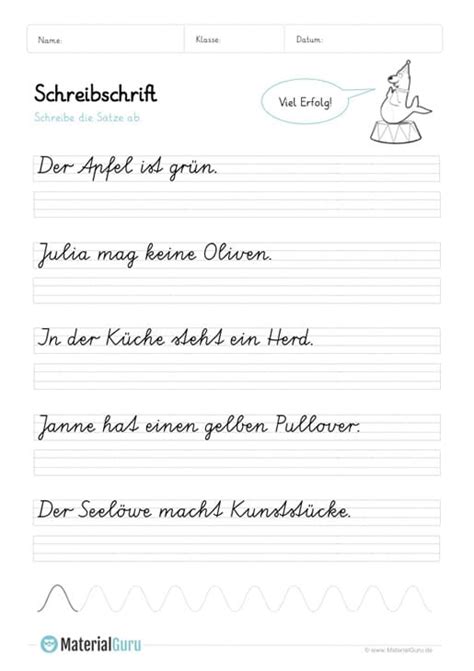 Name:
Klasse:
Datum:
Schreibschrift
Schreibe die Sätze ab.
Viel Erfolg!
Der Apfel ist grün.
Julia mag keine Oliven.
In der Küche steht ein Herd.
Janne hat einen gelben Pullover.
Der Seelöwe macht Kunststücke.
MaterialGuru
© www.MaterialGuru.de